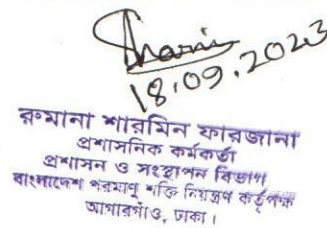 18.09.2023
রুমানা শারমিন ফারজানা
প্রশাসনিক কর্মকর্তা
প্রশাসন ও সংস্থাপন বিভাগ
বাংলাদেশ পরমাণু শক্তি নিয়ন্ত্রণ কর্তৃপক্ষ
আগারগাঁও, ঢাকা।